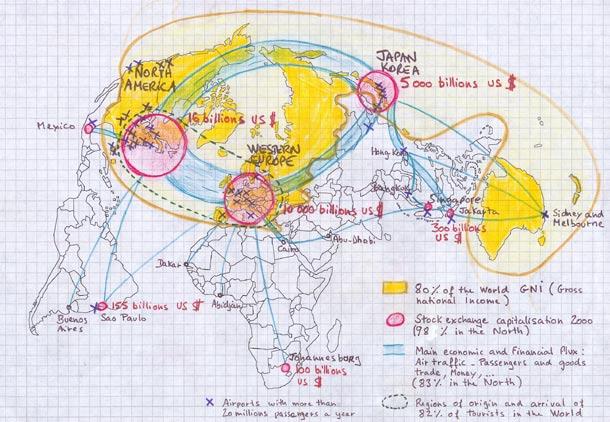 NORTH
AMERICA
JAPAN
KOREA
5 000 billions US $
Mexico
15 billions US $
WESTERN
EUROPE
Hong Kong
Bangkok
10 000 billions US $
Cairo
Abu-Dhabi
Singapore
Jakarta
300 billions
US $
Sidney and
Melbourne
Dakar
Abidjan
155 billions US $
Sao Paulo
Buenos
Aires
Johannesburg
100 billions
US $
80% of the World GNI (Gross
national Income)
Stock exchange capitalisation 2000
(98 % in the North)
Main economic and Financial Flux :
Air traffic - Passengers and goods
trade, Money, ...
(83% in the North)
Regions of origin and arrival of
82% of tourists in the World
x Airports with more than
20 millions passengers a year